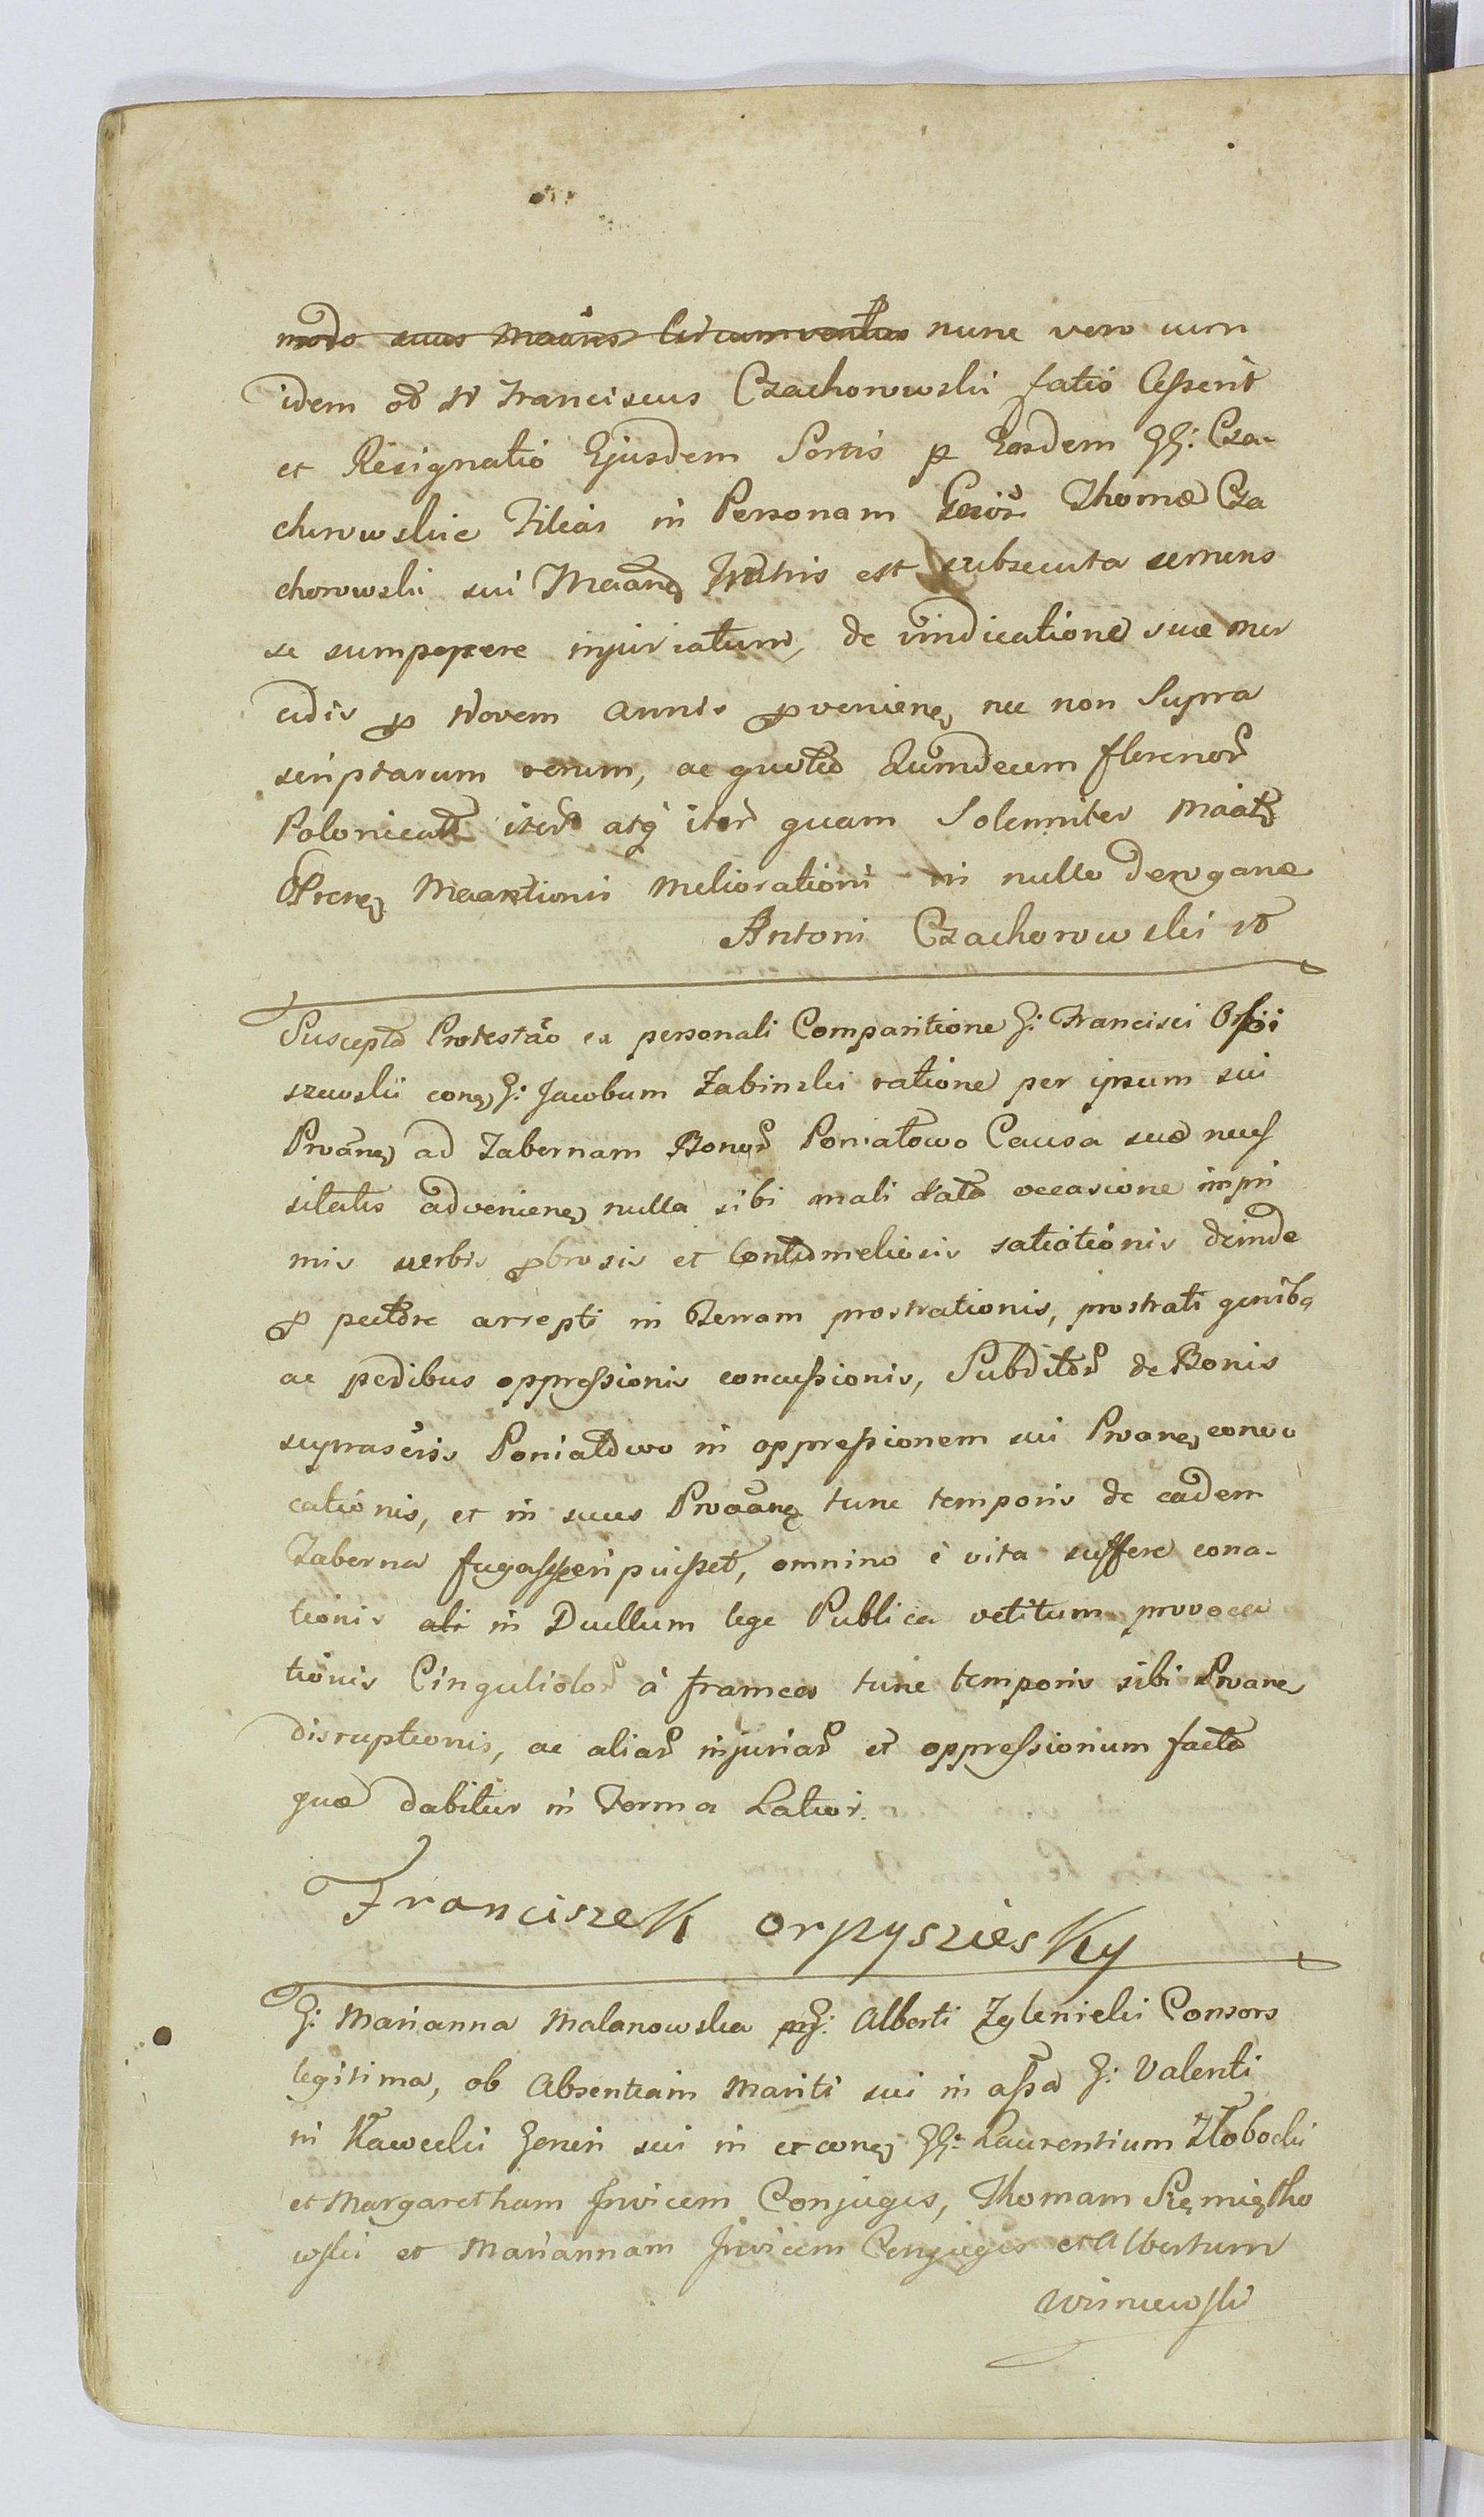 modo suus Maãns Circumventus nunc vero cum
idem oð N Franciscus Czachorowski fatis Cesserit
et Resignatio Ejusdem Sortis p Easdem GG: Cza-
chorowskie Filias in Personam Thomæ Cza
chorowski sui Maãn Frãtris est subsecuta cernens
se summopere injuriatum, de vindicatione suæ mer
cedis p Novem annis proveniens nec non Supra
scriptarum rerum, ac Quindecem florenor
Polonical iter atq iter quam Solemniter Maãt
Offerens Maãtionis meliorationi in nullo derogane
Antoni Czachorowski
Suscepta Protestão ex personali Comparitione G: Francisci Orpi
szewskii cong G: Jacobum Zabinski ratione per ipsum sui
Prõane ad Tabernam Bonor Poniatowo Causa suæ neces
sitatis adveniens nulla sibi mali data occasione impri
mis verbis probrosis et Contumeliosis satiationis deinde
p pectore arrepti in Terram prostrationis, prostrati genibq
ac pedibus oppressionis concussionis, Subditor de Bonis
suprascris Poniatowo in oppressionem sui Prõane convo
cationis, et in suus Prõane tunc temporis de eadem
Taberna eripuisset, omnino è vita auffere cona-
tionis ali in Duellum lege Publica vetitum provoca
tionis Cingulidor à framea tunc temporis sibi Prõane
disruptionis, ac aliar injuriar et oppressionum facta
quæ dabitur in Forma Latior.
Franciszek orpysziesky
G: Marianna Malanowska G: Alberti Zglenicki Consors
legitima, ob Absentiam Mariti sui in assa G: Valenti
ni Kawecki Generi sui in et cong GG: Laurentium Kłobocki
et Margaretham Invicem Conjuges, Thomam Siemiątko
wski et Mariannam Invicem Conjuges et Albertum
Wisniewski